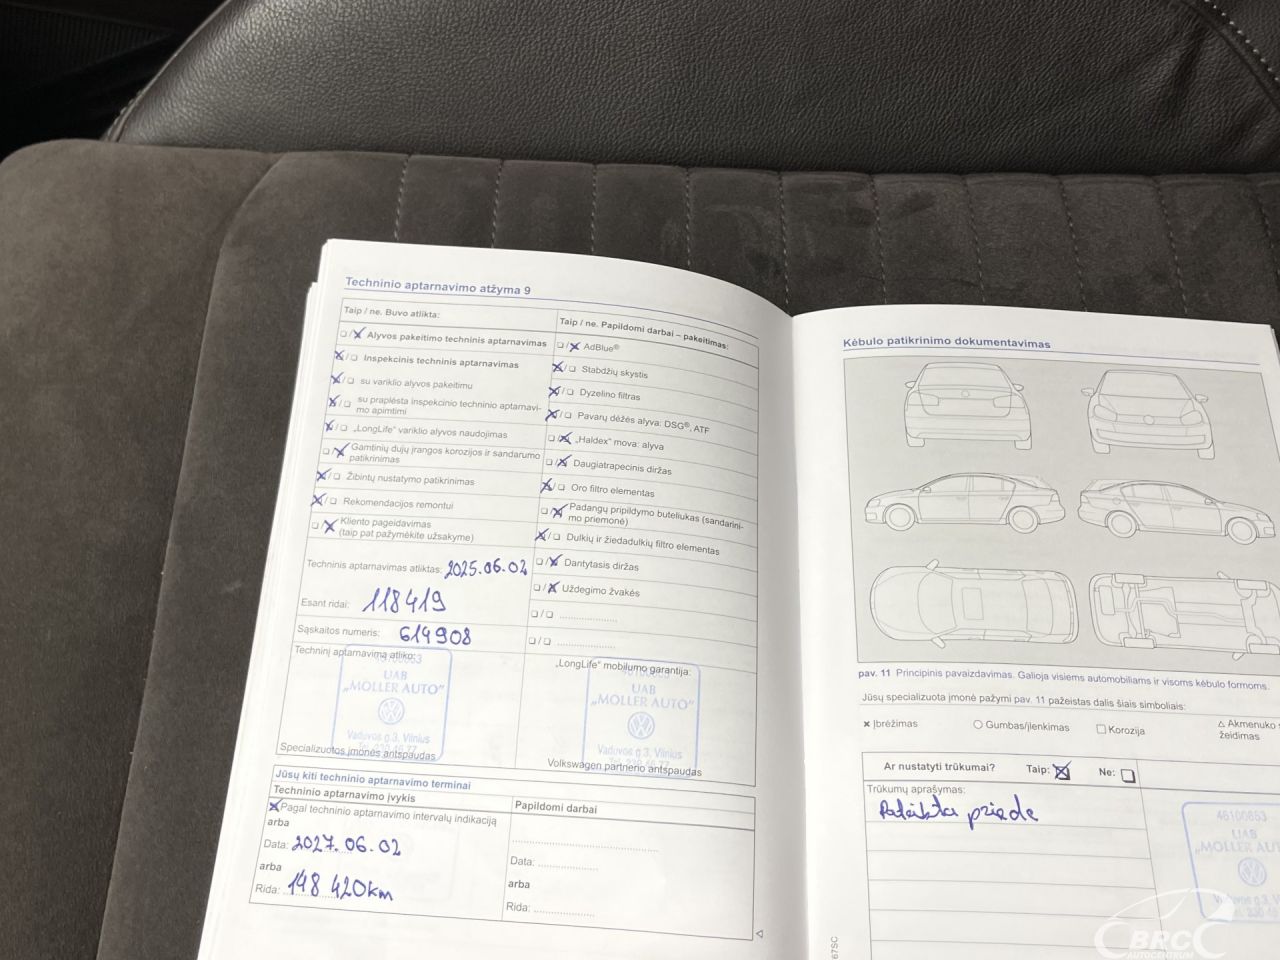 Techninio aptarnavimo atžyma 9
Taip / ne. Buvo atlikta:
Taip / ne. Papildomi darbai – pakeitimas:
Alyvos pakeitimo techninis aptarnavimas
Inspekcinis techninis aptarnavimas
su variklio alyvos pakeitimu
su praplėsta inspekcinio techninio aptarnavi-
mo apimtimi
„LongLife" variklio alyvos naudojimas
Gamtinių dujų įrangos korozijos ir sandarumo
patikrinimas
Žibintų nustatymo patikrinimas
Rekomendacijos remontui
Kliento pageidavimas
(taip pat pažymėkite užsakyme)
AdBlue®
Stabdžių skystis
Dyzelino filtras
Pavarų dėžės alyva: DSG®, ATF
„Haldex" mova: alyva
Daugiatrapecinis diržas
Oro filtro elementas
Padangų pripildymo buteliukas (sandarini-
mo priemonė)
Dulkių ir žiedadulkių filtro elementas
Dantytasis diržas
Uždegimo žvakės
Techninis aptarnavimas atliktas: 2025.06.02
Esant ridai: 118419
Sąskaitos numeris: 614908
Techninį aptarnavimą atliko:
46100853
UAB
„MOLLER AUTO"
Vaduvos g.3, Vilnius
Specializuotos įmonės antspaudas
„LongLife" mobilumo garantija:
UAB
„MOLLER AUTO"
Vaduvos g.3, Vilnius
Volkswagen partnerio antspaudas
Jūsų kiti techninio aptarnavimo terminai
Techninio aptarnavimo įvykis
Papildomi darbai
Pagal techninio aptarnavimo intervalų indikaciją
arba
Data: 2027.06.02
arba
Rida: 148 420km
Data:
arba
Rida:
Kėbulo patikrinimo dokumentavimas
pav. 11 Principinis pavaizdavimas. Galioja visiems automobiliams ir visoms kėbulo formoms.
Jūsų specializuota įmonė pažymi pav. 11 pažeistas dalis šiais simboliais:
Įbrėžimas
Gumbas/įlenkimas
Korozija
Akmenuko
žeidimas
Ar nustatyti trūkumai?
Taip:
Ne:
Trūkumų aprašymas:
46100853
UAB
„MOLLER AU
BRC
AUTOCENTRUM
67SC